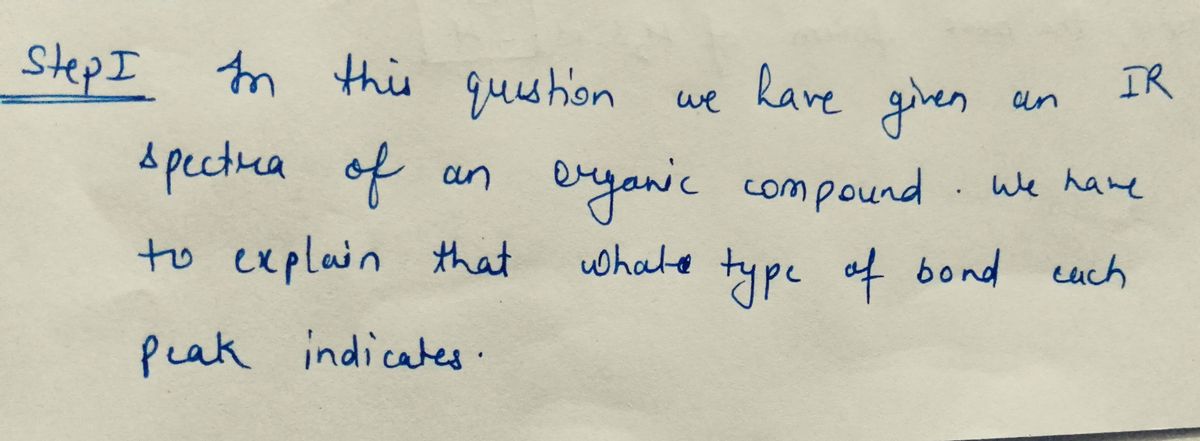 Step I In this question we have given an IR
spectra of an organic compound. We have
to explain that what type of bond each
peak indicates.